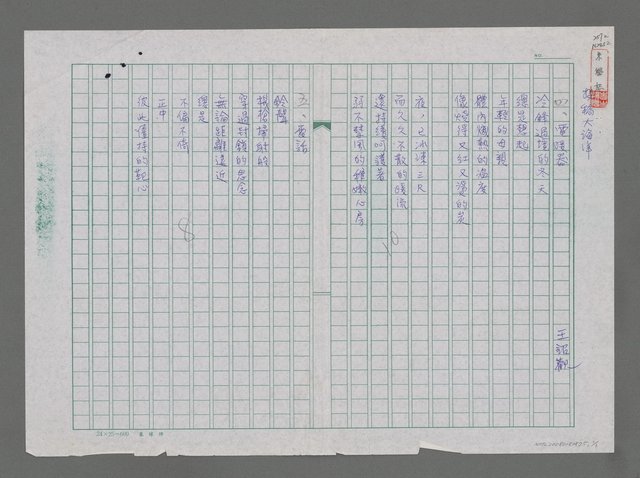 投稿大海洋
四、電暖器
王詔觀
冷鋒過境的冬天
總是想起
年輕的母親
體內熾熱的溫度
像燒得又紅又燙的炭
夜，已冰凍三尺
而久久不散的暖流
還持續呵護著
弱不禁風的稚嫩心房
10
五、電話
鈴聲
機槍掃射的
穿過封鎖的思念
無論距離遠近
總是
不偏不倚
正中
彼此僵持的靶心
8
NO.
24×25=600